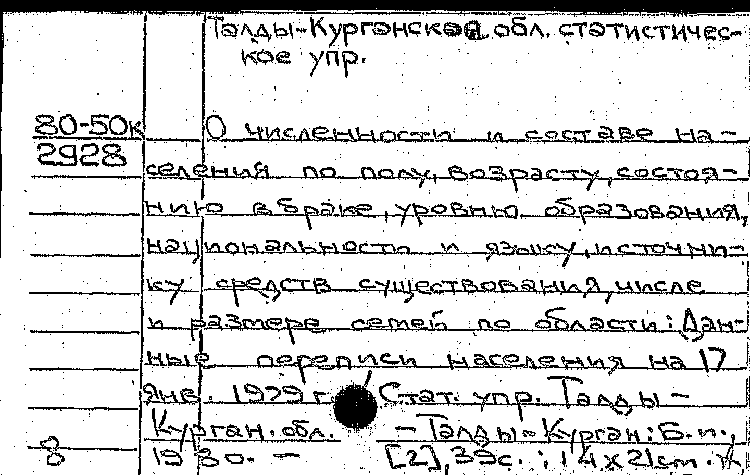 Талды-Курганское обл. статистичес-
кое упр.
80-50к О численности и составе на-
2928 селения по полу, возрасту, состоя-
нию в браке, уровню образования,
национальности и языку, источни-
ку средств существования, числе
и размере семей по области: Дан-
ные переписи населения на 17
янв. 1979 г. / Стат. упр. Талды-
Курган. обл. - Талды-Курган: Б.и.,
8 1980. - [2], 39с.; 14х21см.